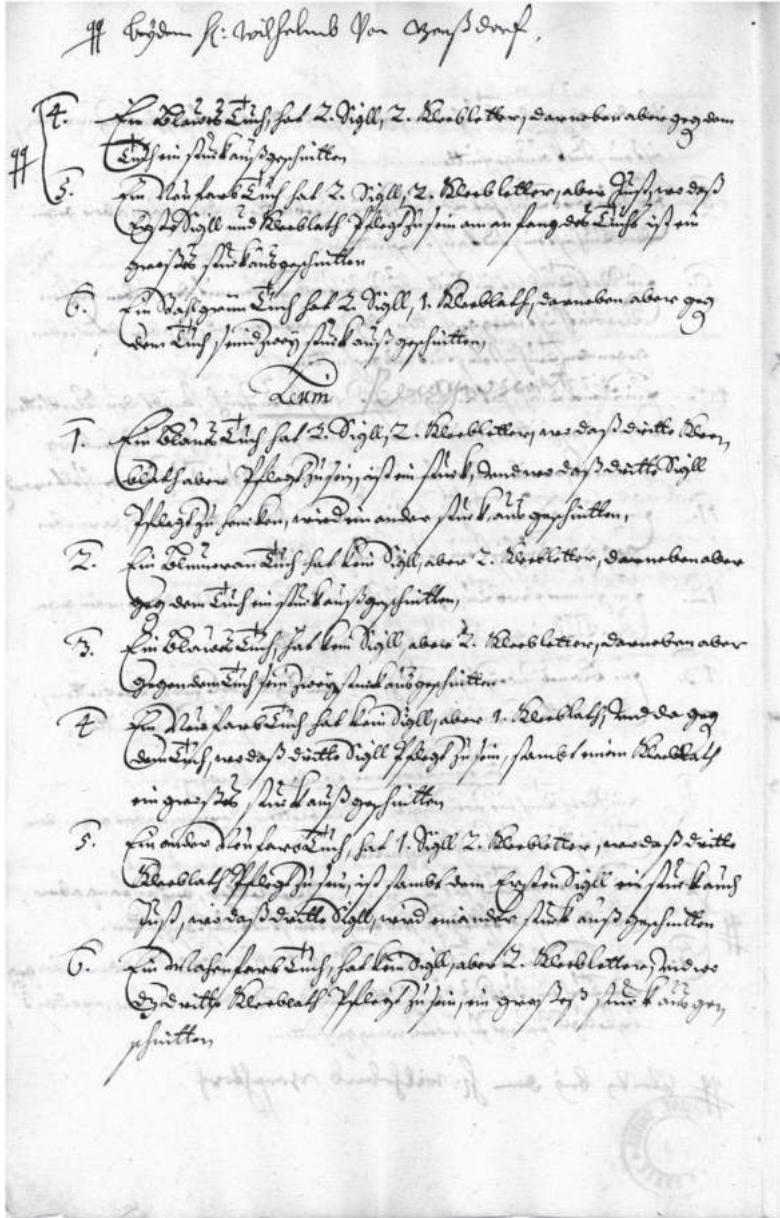 beydem H: Wilhelmb Von
4. Ein Blawes Tuch, hat 2. Sigll, 2. Kleebletter, darneben aber geg dem
Tuch ein stuck außgeschnitten
5. Ein Neufarb Tuch hat 2. Sigll, 2. Kleebletter, aber Just, wo daß
Erste Sigll und Kleeblath Pflegt zu sein am anfang des Tuchs ist ein
großes stuck ausgeschnitten
6. Ein Tuch hat 2. Sigll, 1. Kleeblath, darneben aber geg
dem Tuch seind zwey stuck auß geschnitten,
1. Ein Blaues Tuch hat 2. Sigll, 2. Kleebletter, wo daß dritte Klee
blath aber Pflegt zu sein, ist ein stuck, Vnd wo daß dritte Sigll
Pflegt zu hencken, wird ein ander stuck aus geschnitten,
2. Ein Tuch hat kein Sigll, aber 2. Kleebletter, darneben aber
geg dem Tuch ein stuck außgeschnitten,
3. Ein Blawes Tuch, hat kein Sigll, aber 2. Kleebletter, darneben aber
gegen dem Tuch sein zwey stuck ausgeschnitten
4 Ein Neufarb Tuch hat kein Sigll, aber 1. Kleeblath, Vnd da geg
dem Tuch, wo daß dritte Sigll Pflegt zu sein, sambt einem Kleeblath
ein großes stuck auß geschnitten
5. Ein ander Neufarb Tuch, hat 1. Sigll 2. Kleebletter, wo daß dritte
Kleeblath Pflegt zu sein, ist sambt dem Ersten Sigll ein stuck auch
Just, wo daß dritte Sigll, wird ein ander stuck auß geschnitten
6. Ein Tuch, hat kein Sigll, aber 2. Kleebletter, Vnd wo
dz dritte Kleeblath Pflegt zu sein, ein großeß stuck aus ge
schnitten